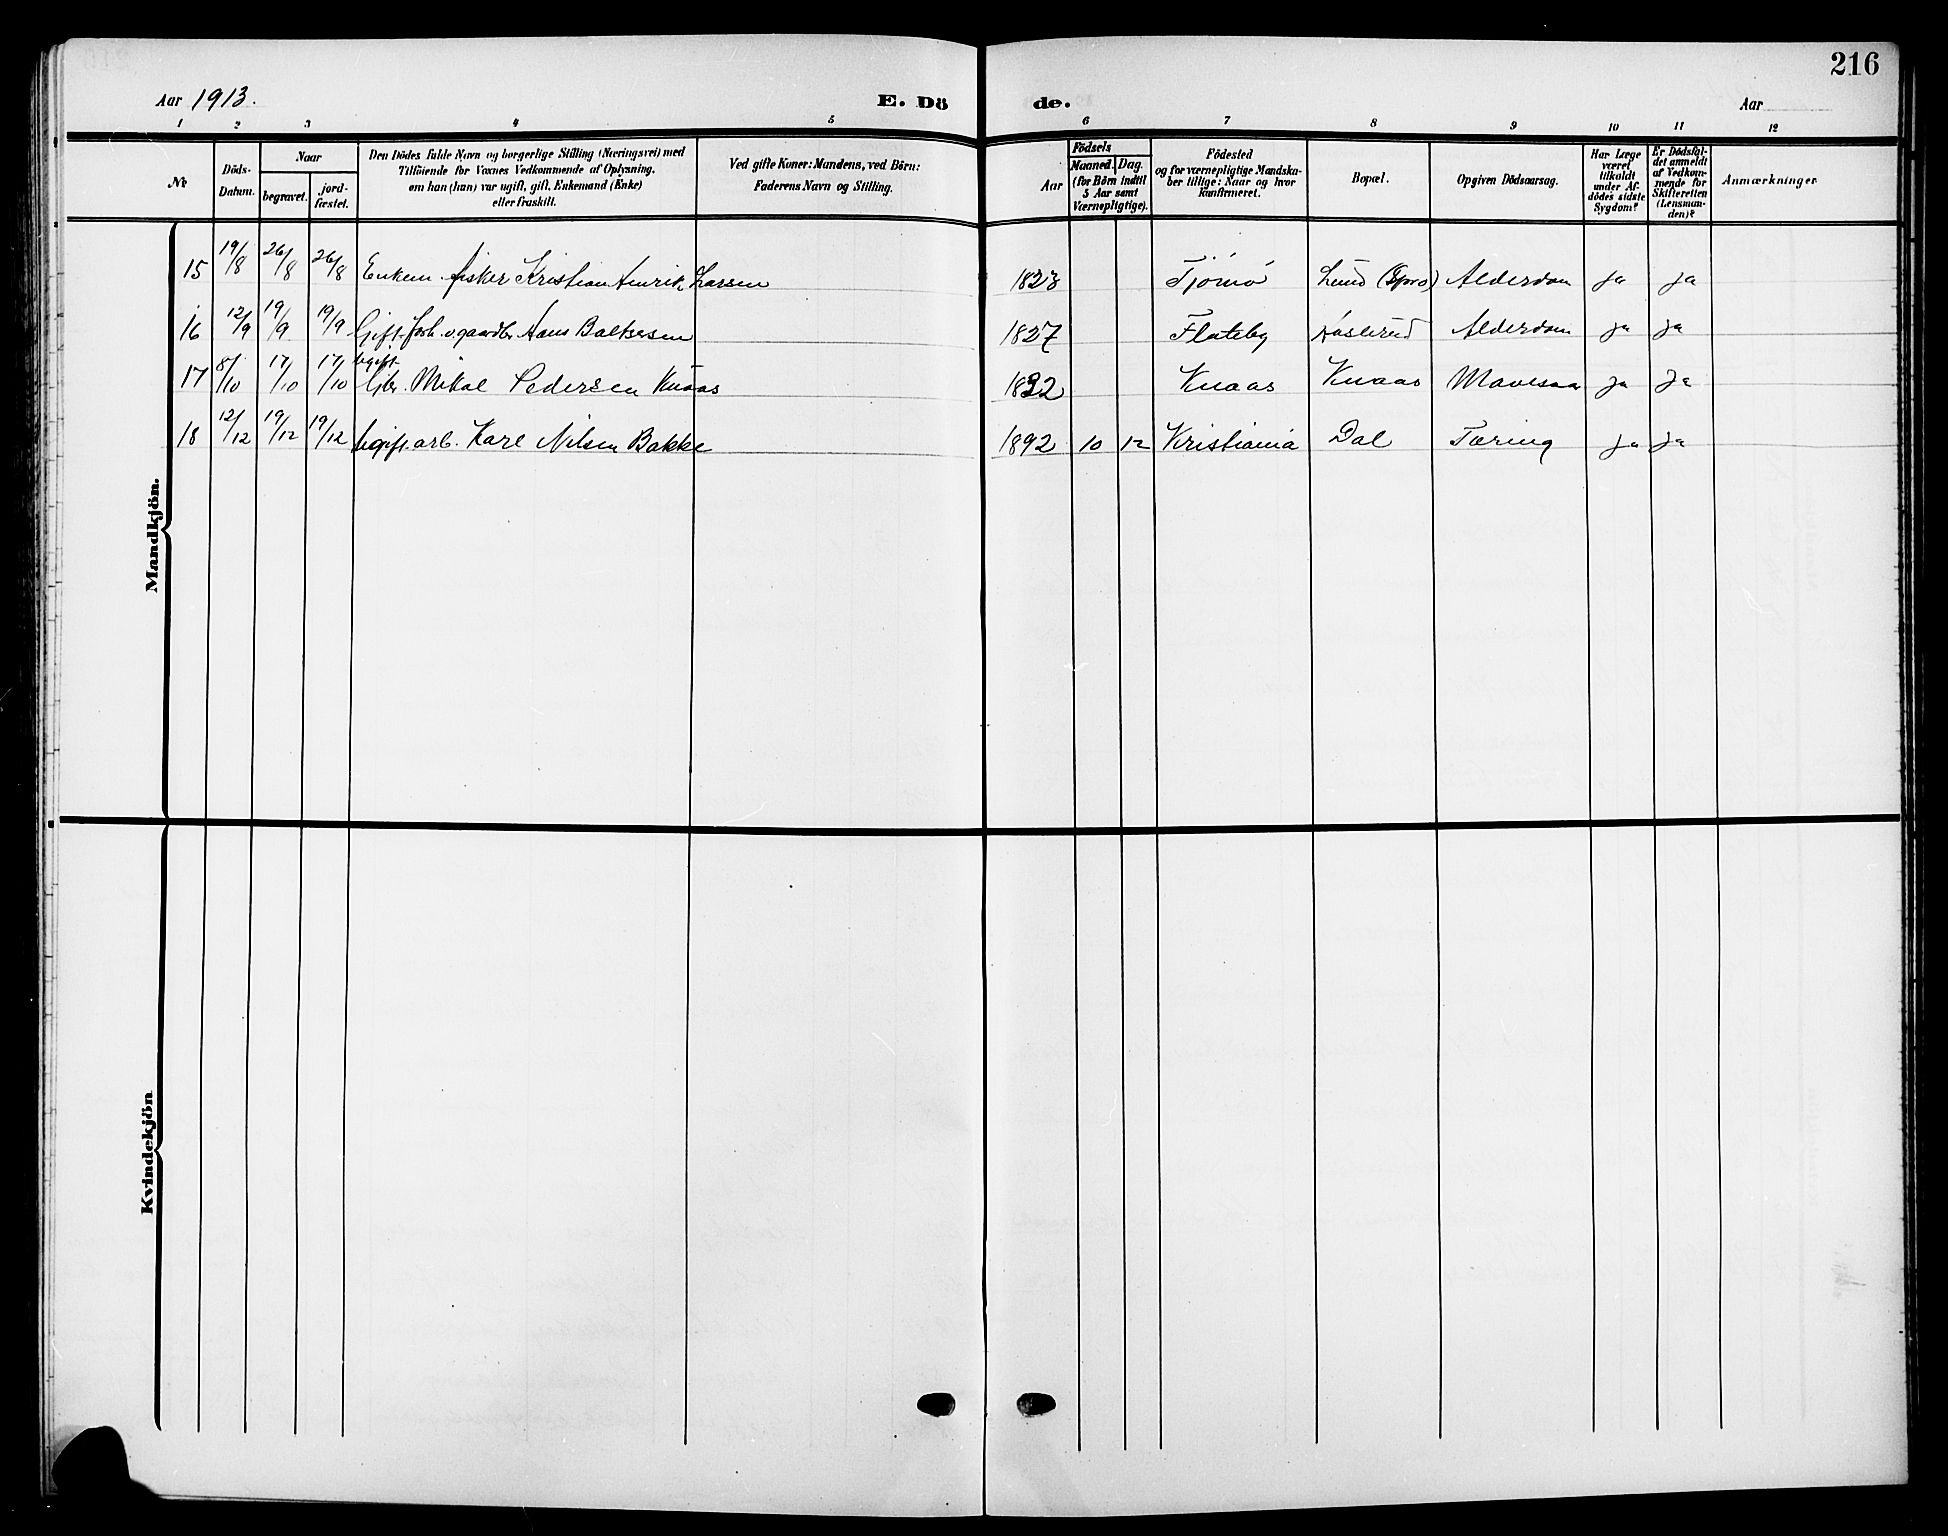 216
Aar 1913.
E. Dö de.
Aar
1 2 3 4 5 6 7 8 9 10 11 12
No
Döds-
Datum.
Naar
begravet.
jord-
fæstet.
Den Dödes fulde Navn og borgerlige Stilling (Næringsvei) med
Tilföiende for Voxnes Vedkommende af Oplysning,
om han (hun) var ugift, gift, Enkemand (Enke)
eller fraskilt.
Ved gifte Koner: Mandens, ved Börn:
Faderens Navn og Stilling.
Födsels
Aar
Maaned. Dag.
(for Börn indtil
5 Aar samt
Værnepligtige).
Födested
og for værnepligtige Mandska-
ber tillige: Naar og hvor
konfirmeret.
Bopæl.
Opgiven Dödsaarsag.
Har Læge
været
tilkaldt
under Af-
dödes sidste
Sygdom?
Er Dödsfal-
det anmeldt
af Vedkom-
mende for
Skifteretten
(Lensman-
den)?
Anmærkninger
Mandkjön.
15 19/8 26/8 26/8 Enkem. fisker Kristian Henrik Larsen 1823 Tjömö Lund Alderdom ja ja
16 12/9 19/9 19/9 Gift. forh. v. gaardbr. Hans Baltsersen 1827 Flateby Alderdom ja ja
17 8/10 17/10 17/10 Ugift Gbr. Mikal Pedersen Knaas 1832 Knaas Knaas Mavesaar ja ja
18 12/12 19/12 19/12 Ugift. arb. Karl Nilsen Bakke 1892 10 12 Kristiania Dal Tæring ja ja
Kvindekjön